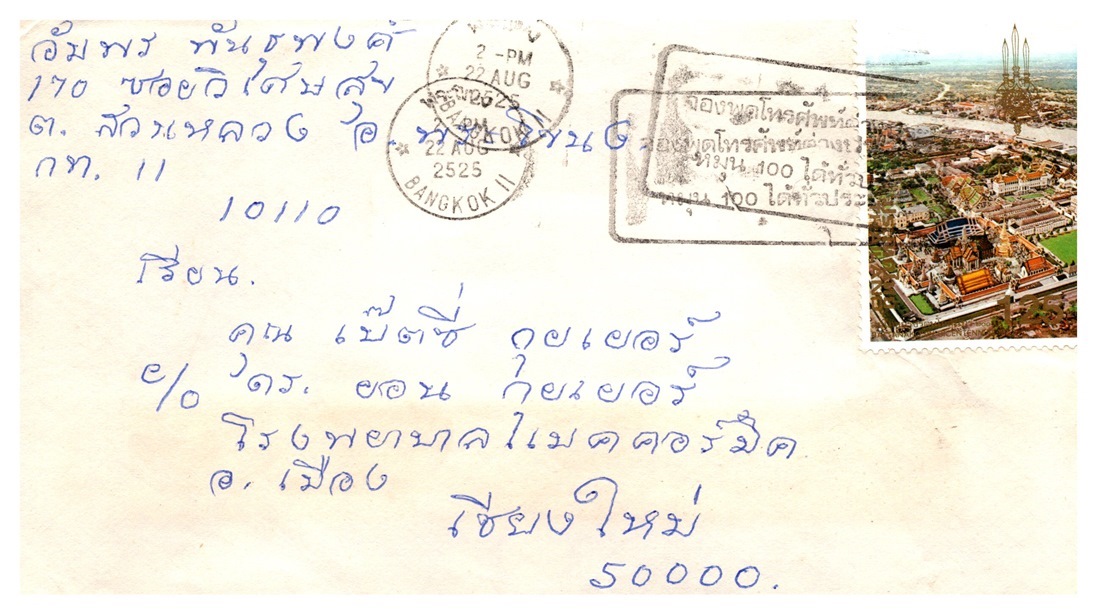 อัมพร พันธุพงศ์
170 ซอยวิเศษสุข
ต. สวนหลวง อ. พระโขนง
กท. 11
10110
2 -PM
22 AUG
2525
BANGKOK 11
PM
22 AUG
2525
BANGKOK 11
จองพูดโทรศัพท์
หมุน 100 ได้ทั่ว
จองพูดโทรศัพท์ต่าง
หมุน 100 ได้ทั่วประ
เรียน.
คุณ เบ๊ตซี่ กุยเยอร์
c/o ดร. ยอน กุยเยอร์
โรงพยาบาลแมคคอร์มิค
อ. เมือง
เชียงใหม่
50000.